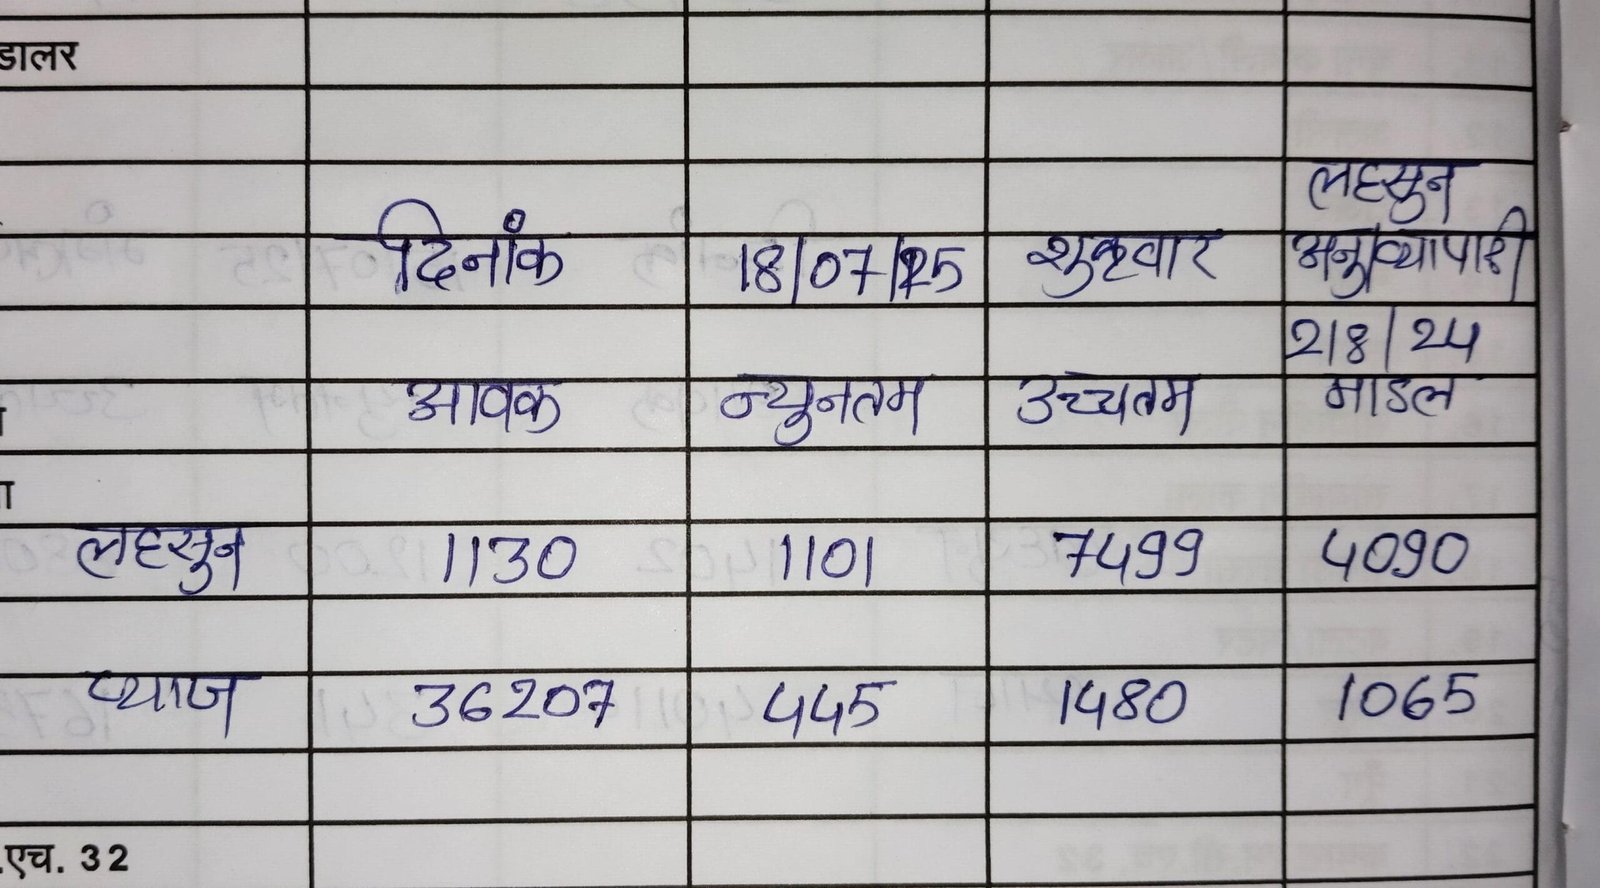 डालर
लहसुन
दिनांक 18/07/25 शुक्रवार अनु/व्यापारी
218/24
आवक न्युनतम उच्चतम माडल
लहसुन 1130 1101 7499 4090
प्याज 36207 445 1480 1065
.एच. 32